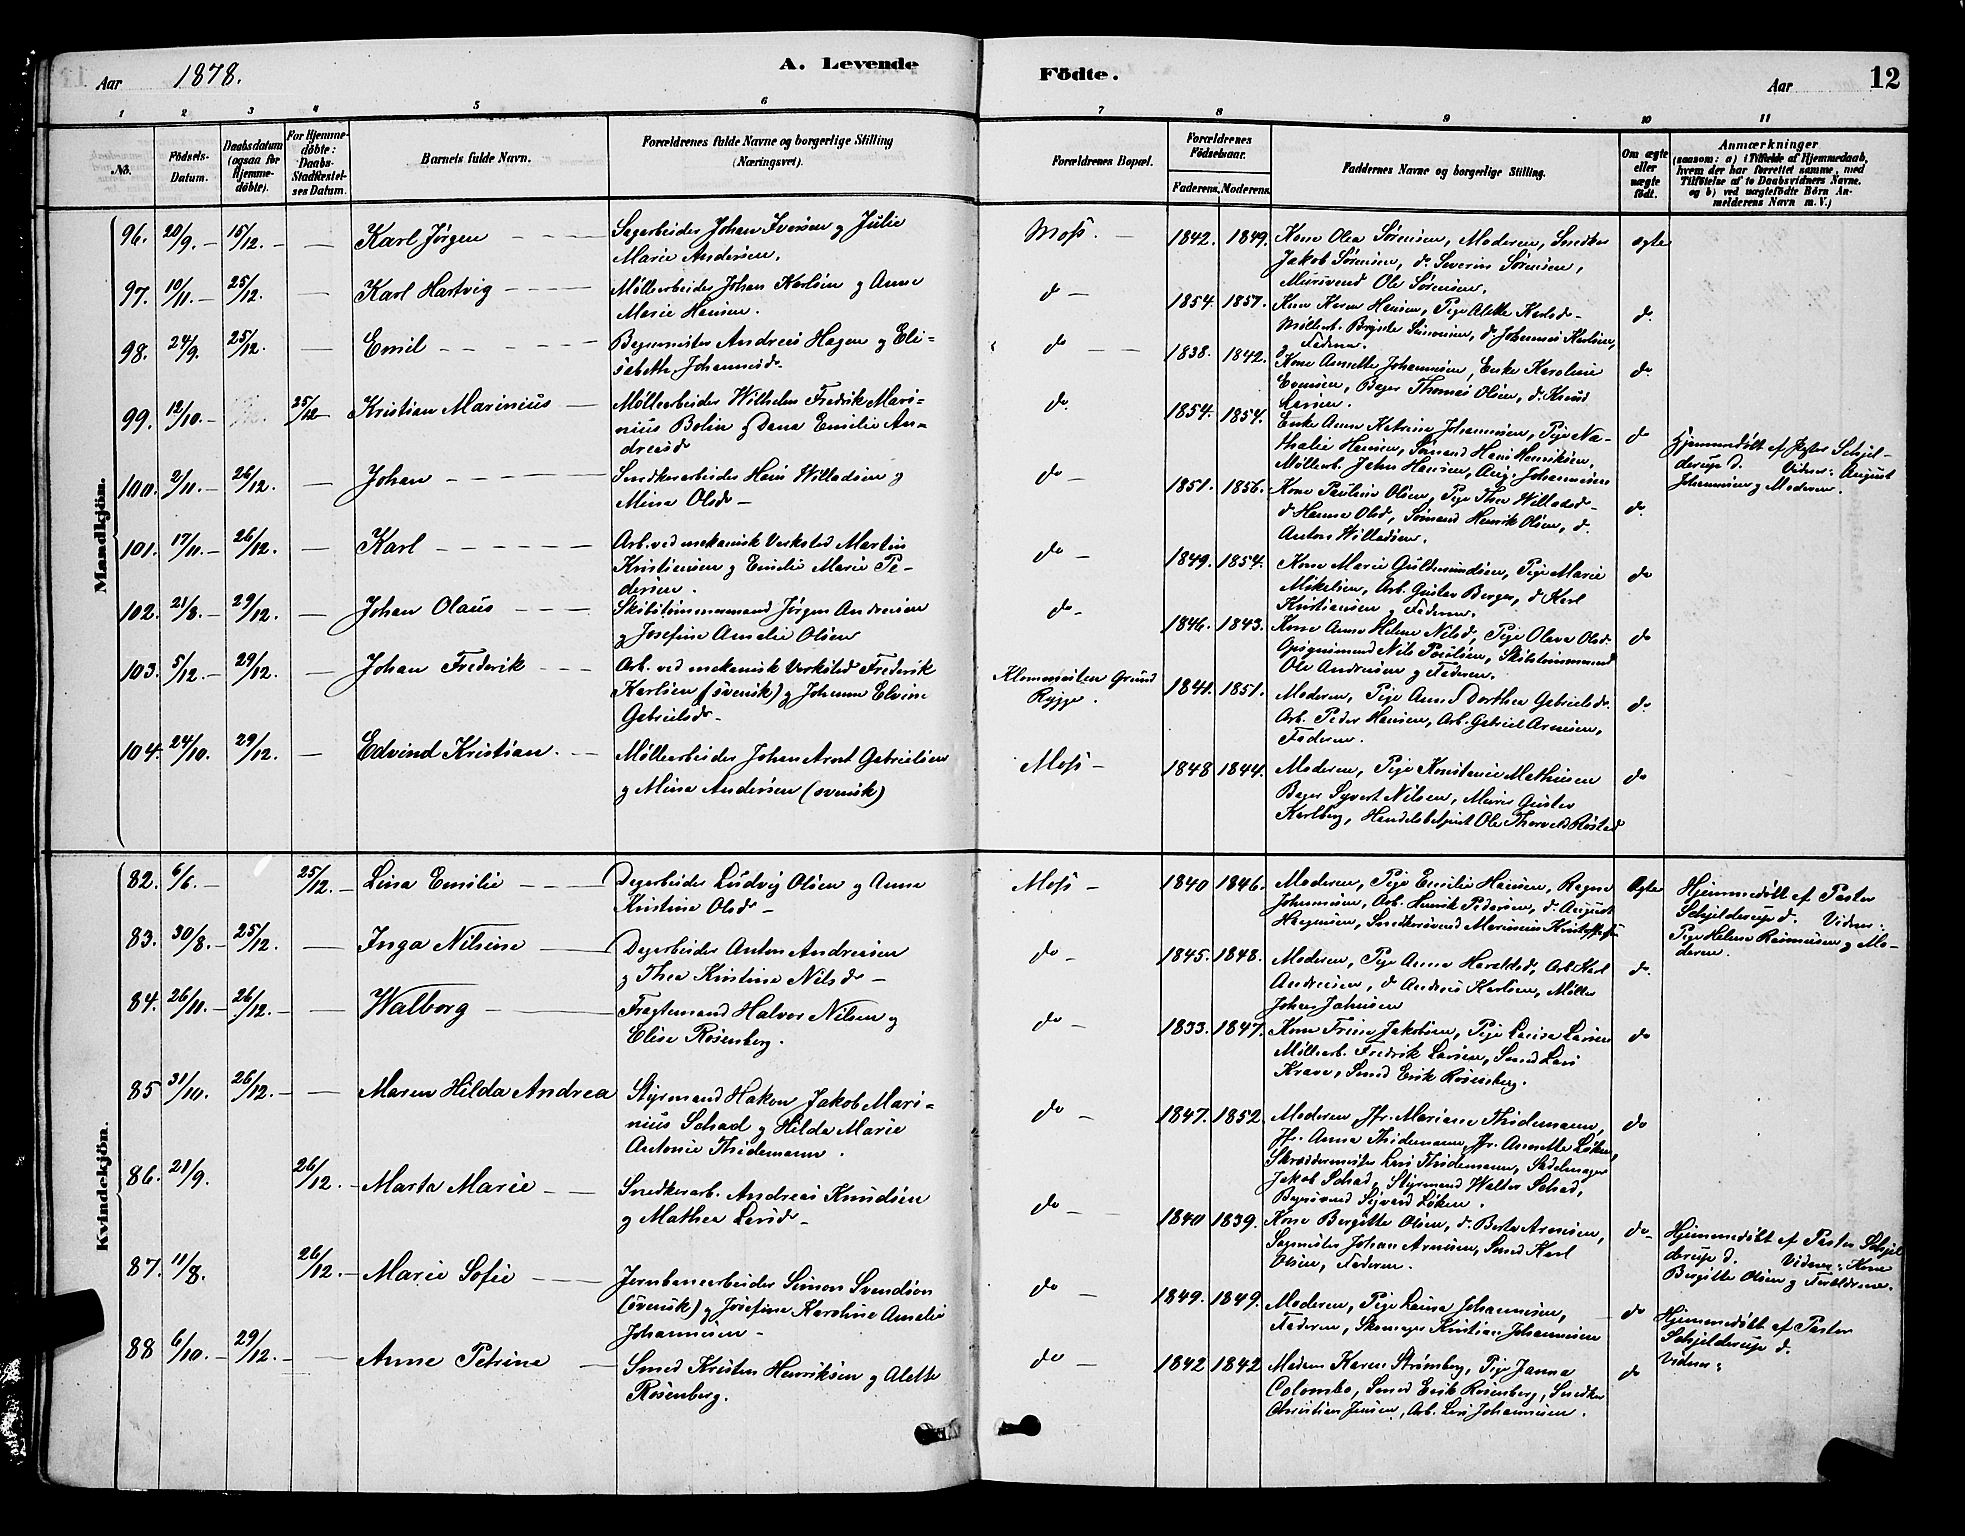 Aar 1878. A. Levende Födte. Aar 12
1 2 3 4 5 6 7 8 9 10 11
No. Födsels-Datum. Daabsdatum (ogsaa for Hjemme-döbte). For Hjemme-döbte: Daabs-Stadfæstel-ses Datum. Barnets fulde Navn. Forældrenes fulde Navne og borgerlige Stilling (Næringsvei). Forældrenes Bopæl. Forældrenes Födselsaar. Faderens. Moderens. Faddernes Navne og borgerlige Stilling. Om ægte eller uægte födt. Anmærkninger (saasom: a) i Tilfælde af Hjemmedaab, hvem der har forrettet samme, med Tilföielse af to Daabsvidners Navne. og b) ved uægtefödte Börn An-melderens Navn m. V.)
Mandkjön.
96. 20/9. 15/12. Karl Jørgen
Sagarbeider Johan Iversen og Julie
Marie Andersen.
Moss. 1842. 1849.
Kone Olea Sørensen, Moderen, Snedker
Jakob Sørensen, do Severin Sørensen,
Mursvend Ole Sørensen.
ægte
97. 10/11. 25/12. Karl Hartvig
Møllearbeider Johan Karlsen og Anne
Marie Hansen.
do 1854. 1857.
Kone Karen Hansen, Pige Alette Karlsd.
Møllearb. Johannes Karlsen,
Faderen.
do.
98. 24/9. 25/12. Emil
Bagermester Andreas Hagen og Eli-
sabeth Johannesd.
do 1838. 1842.
Kone Annette Johannesen, Enke Karoline
Evensen, Bager Thomas Olsen, do Knud
Larsen.
do.
99. 12/10. 25/12 Kristian Marinius
Møllearbeider Wilhelm Fredrik Mari-
nius Bolin og Dana Emilie An-
dreasd
do. 1854. 1854.
Enke Anne Katrine Johannesen, Pige Na-
thalie Hansen, Sømand Hans Henriksen,
Møllearb. Johan Hansen, Aug. Johannesen
do
Hjemmedøbt af Pastor Schjel-
derup d. Vidner: August
Johannesen og Moderen.
100. 2/11. 26/12. Johan
Snedkerarbeider Hans Willadsen og
Mina Olsd
do 1851. 1856.
Kone Pauline Olsen, Pige Thea Willadsd.
do Hanna Olsd, Sømand Henrik Olsen, do.
Anton Willadsen.
do.
101. 17/11. 26/12. Karl
Arb. ved mekanisk Verksted Martin
Kristiansen og Emilie Marie Pe-
dersen.
do 1849. 1854.
Kone Marie Guldmundsen, Pige Marie
Mikelsen, Arb. Gustav Berger, do Karl
Kristiansen og Faderen.
do
102. 21/8. 29/12. Johan Olaus
Skibstømmermand Jørgen Andresen
og Josefine Amalie Olsen
do 1846. 1843.
Kone Anne Helene Nilsd, Pige Olava Olsd.
Opsynsmand Nils Poulsen, Skibstømmermand
Ole Andresen og Faderen.
do
103. 5/12. 29/12. Johan Frederik
Arb. ved mekanisk Verksted Frederik
Karlsen (svensk) og Johanne Elvine
Gabrielsd.
Grund
Rygge.
1841. 1851.
Moderen, Pige Anne Dorthea Gabrielsd.
Arb. Peder Hansen, Arb. Gabriel Arnesen,
Faderen.
do.
104. 24/10. 29/12. Edvind Kristian.
Møllearbeider Johan Arnt Gabrielsen
og Mina Andersen (svensk)
Moss 1848 1844.
Moderen, Pige Konstance Mathisen
Bager Syvert Nilsen, Murer Gustav
Karlberg, Handelsbetjent Ole Thorvald Røsted
do
Kvindekjön.
82. 6/6. 25/12. Lina Emilie
Dagarbeider Ludvig Olsen og Anne
Kristine Olsd
Moss 1840 1846.
Moderen, Pige Emilie Hansen, Ragna
Johannesen, Arb. Henrik Pedersen, do. August
Haagensen, Snedkersvend Marinius Kristoffersen
Ægte
Hjemmedøbt af Pastor
Schjelderup d. Vidner:
Pige Helene Rasmussen og Mo-
deren.
83. 30/8. 25/12. Inga Nilsine
Dagarbeider Anton Andreasen
og Thea Kristine Nilsd
do 1845. 1848.
Moderen, Pige Anna Haraldsd, Arb. Karl
Andresen, do Andreas Karlsen, Møller
Johan Jahnsen
do.
84. 26/11. 26/12. Walborg
Fragtemand Halvor Nilsen og
Elise Rosenberg.
do 1833. 1847.
Kone Jakobsen, Pige Louise Larsen
Møllearb. Fredrik Larsen, Smed Lars
Krave, Smed Erik Rosenberg.
do
85 31/10. 26/12. Maren Hilda Andrea
Styrmand Hakon Jakob Mari-
nius Schad og Hilda Marie
Antonie Thidemann.
do 1847. 1852.
Moderen, Jfr. Mariane Thidemann,
Jfr. Anna Thidemann, Jfr. Annette Løken,
Skræddermester Lars Thidemann, Sadelmager
Jakob Schad, Styrmand Walter Schad,
Sigvard Løken.
do
86. 21/9. 26/12. Marta Marie
Snedkerarb. Andreas Knudsen
og Mathea Larsd
do 1840 1839.
Kone Bergitte Olsen, do. Berte Arnesen,
Sagmester Johan Arnesen, Smed Karl
Olsen, Faderen.
do
Hjemmedøbt af Pastor Schjel
derup d. Vidner: Kone
Bergitte Olsen og Forældrene.
87. 11/8. 26/12. Marie Sofie
Jernbanearbeider Simon Svendsen
(svensk) og Josefine Karoline Amalie
Johannesen
do 1849. 1849.
Moderen, Pige Laura Johannesen,
Faderen, Skomager Kristian Johannesen
do
Hjemmedøbt af Pastor
Schjelderup d.
Vidner:
88 6/10. 29/12. Anne Petrine
Smed Kristen Henriksen og Alette
Rosenberg.
do 1842 1842
Madam Karen Strømberg, Pige Janna
Colombo, Smed Erik Rosenberg, Snedker
Christian Jensen, Arb. Lars Johannesen.
do